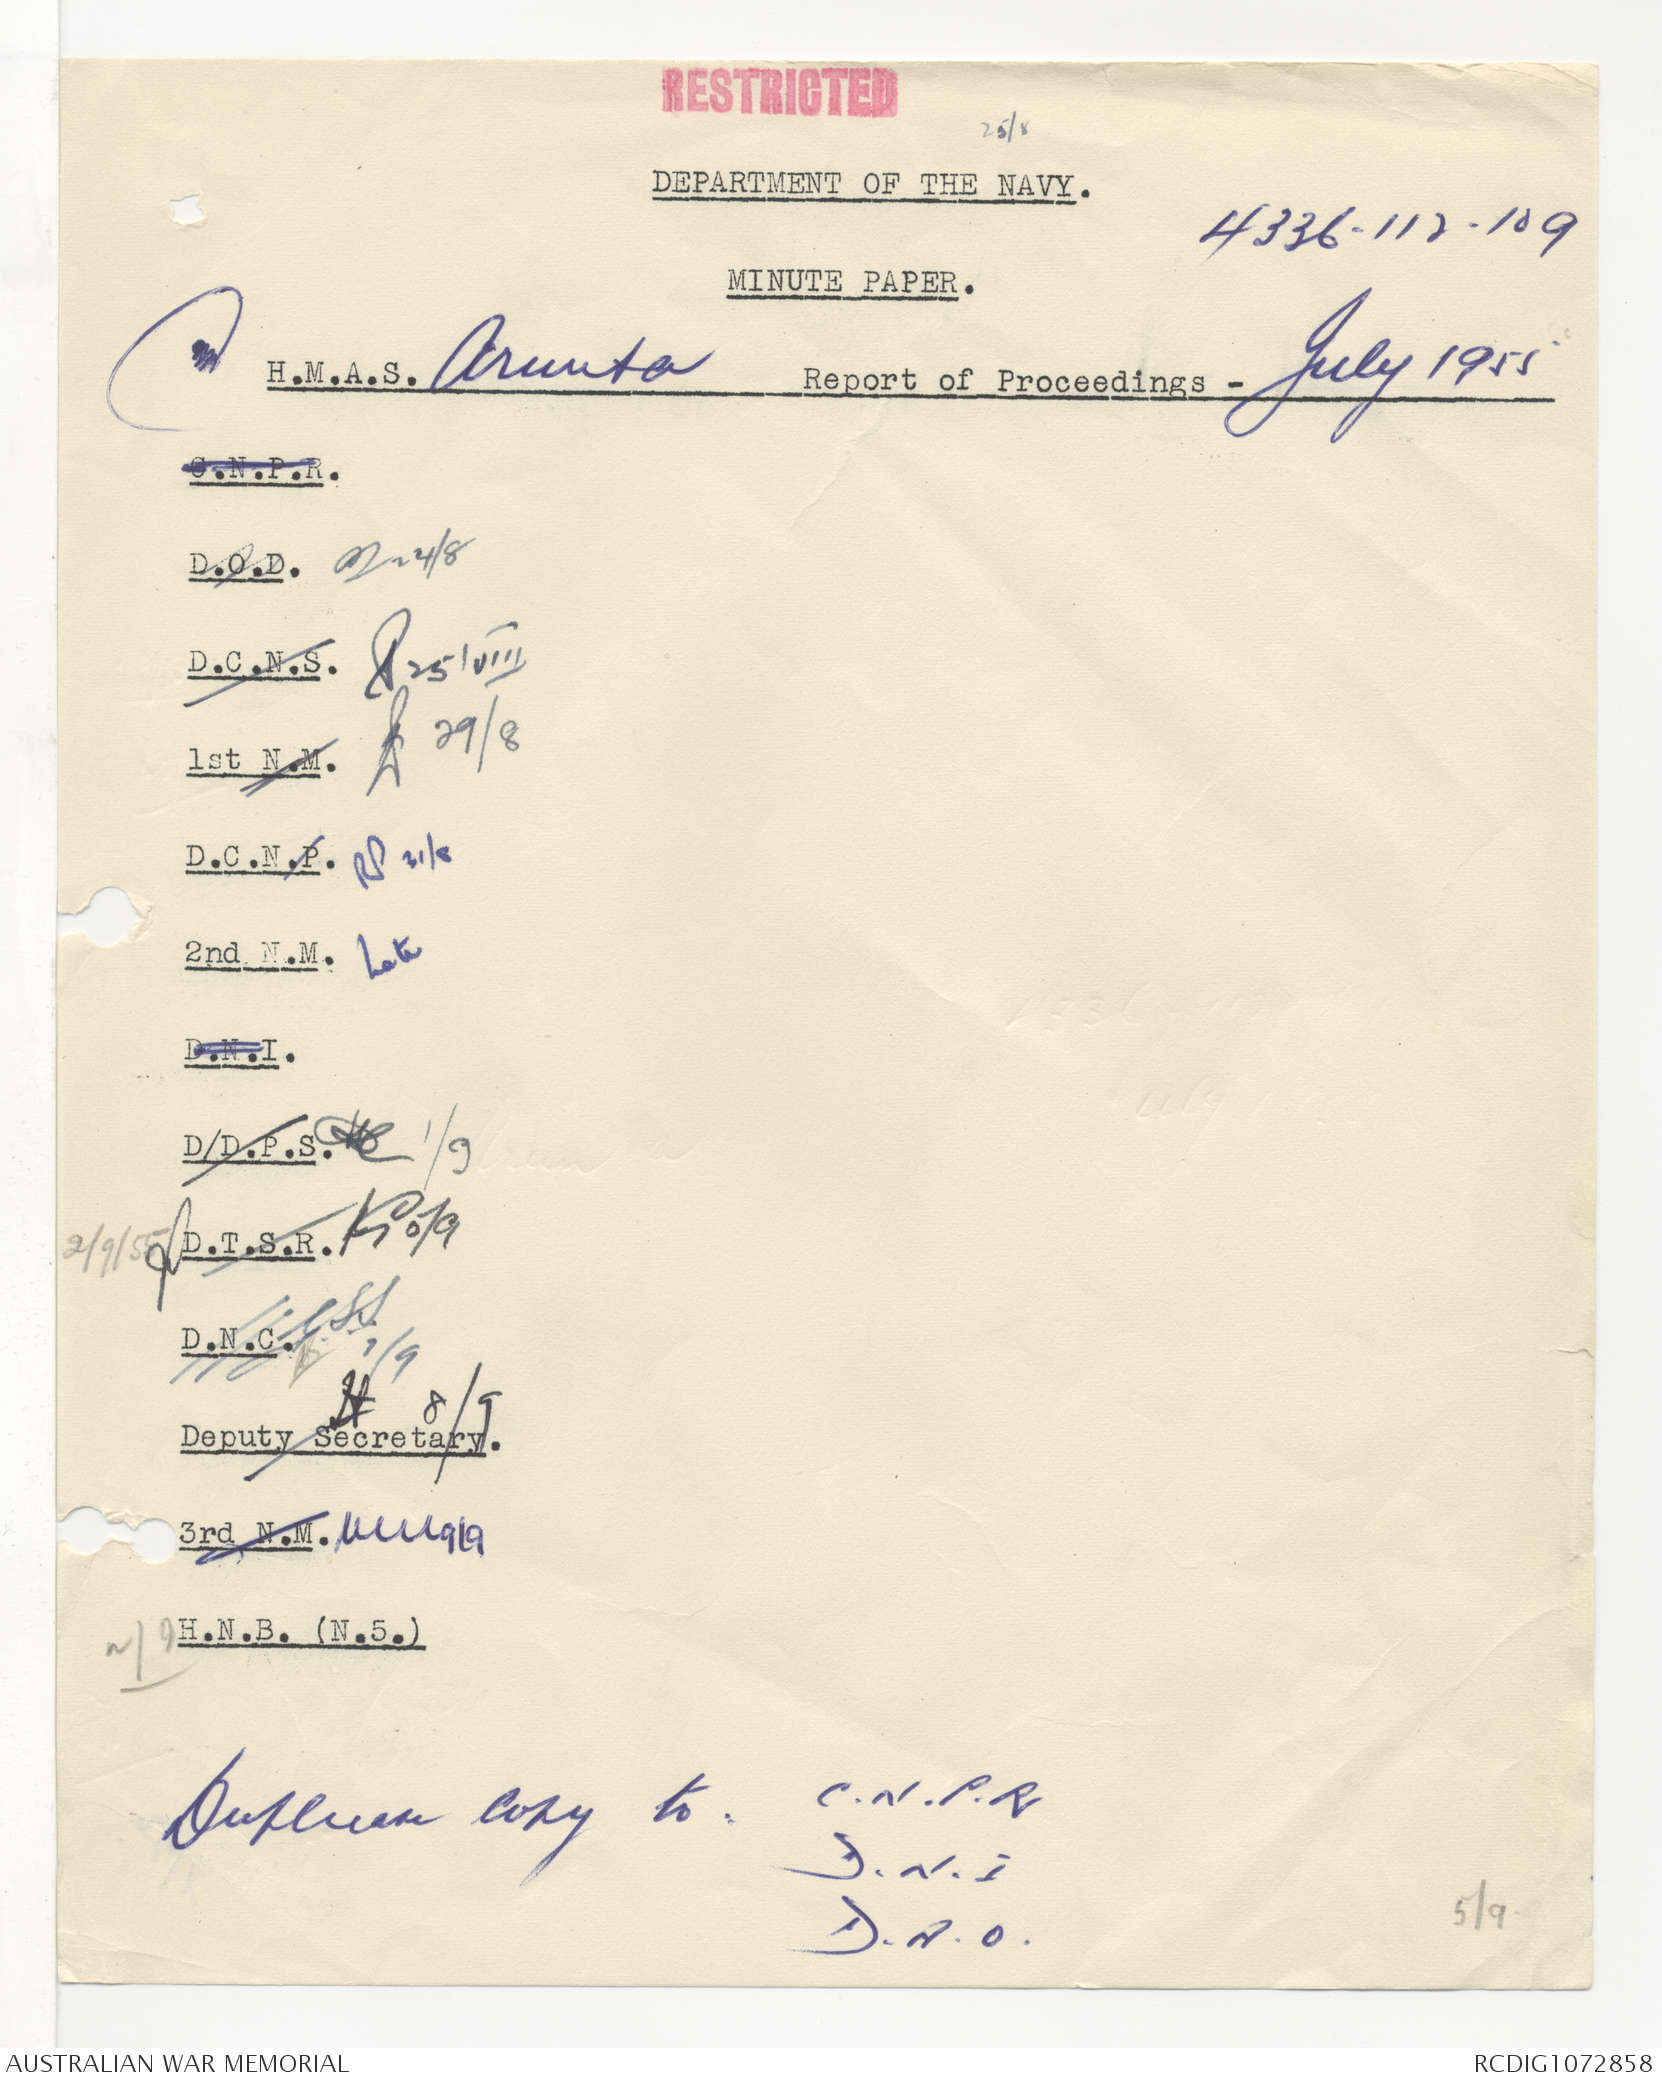 RESTRICTED
25/8
DEPARTMENT OF THE NAVY.
4336-112-109
MINUTE PAPER.
H.M.A.S. Arunta Report of Proceedings - July 1955
C.N.P.R.
D.O.D. 24/8
D.C.N.S. 25/VIII
1st N.M. 29/8
D.C.N.P. 31/8
2nd N.M. Late
D.N.I.
D/D.P.S. 1/9
2/9/55 D.T.S.R. 5/9
D.N.C. 7/9
Deputy Secretary. 8/9
3rd N.M. 9/9
H.N.B. (N.5.)
Duplicate Copy to. C.N.P.R
D.N.I
D.N.O.
5/9
AUSTRALIAN WAR MEMORIAL
RCDIG1072858